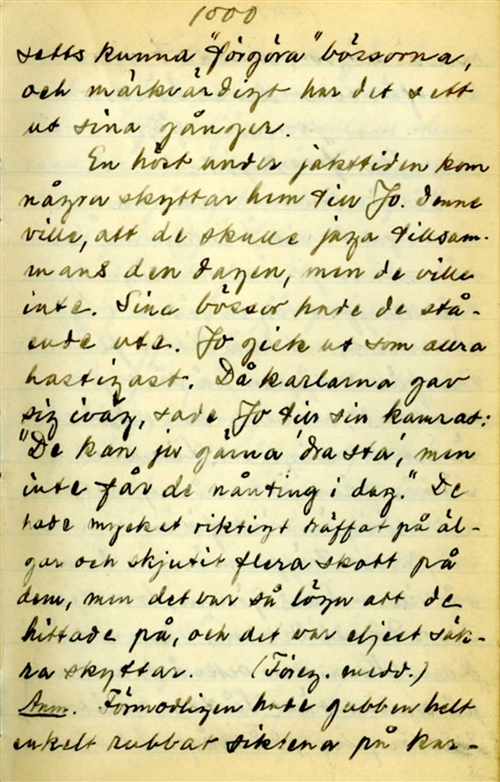 1000
setts kunna "förgöra" bössorna,
och märkvärdigt har det sett
ut sina gånger.
En höst under jakttiden kom
några skyttar hem till Jo. Denne
ville, att de skulle jaga tillsam-
mans den dagen, men de ville
inte. Sina bössor hade de stå-
ende ute. Jo gick ut som allra
hastigast. Då karlarna gav
sig iväg, sade Jo till sin kamrat:
"De kan ju gärna 'dra sta', men
inte får de nånting i dag." De
hade mycket riktigt träffat på äl-
gar och skjutit flera skott på
dem, men det var så lögn att de
hittade på, och det var eljest säk-
ra skyttar. (Föreg. medd.)
Anm. Förmodligen hade gubben helt
enkelt rubbat siktena på kar-